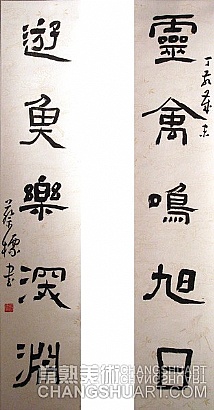 靈禽鳴旭日
丁卯歲末
遊魚樂深淵
蔡標書
常熟美術
CHANGSHUART
CHANGSHUART.COM